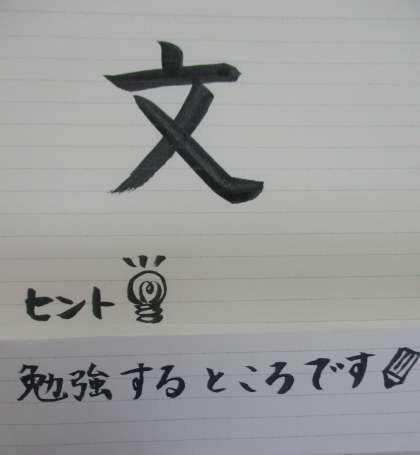 文
セント
勉強するところです